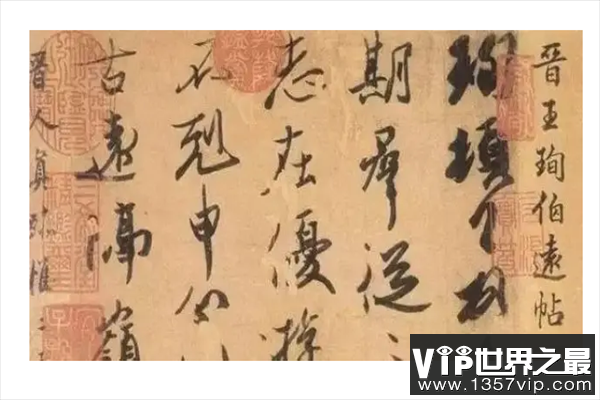 晉王珣伯遠帖
珣頓首
期羣從
志在優游
不剋申分
古遠隔嶺
晉人真跡惟二
VIP世界之最
www.1357vip.com